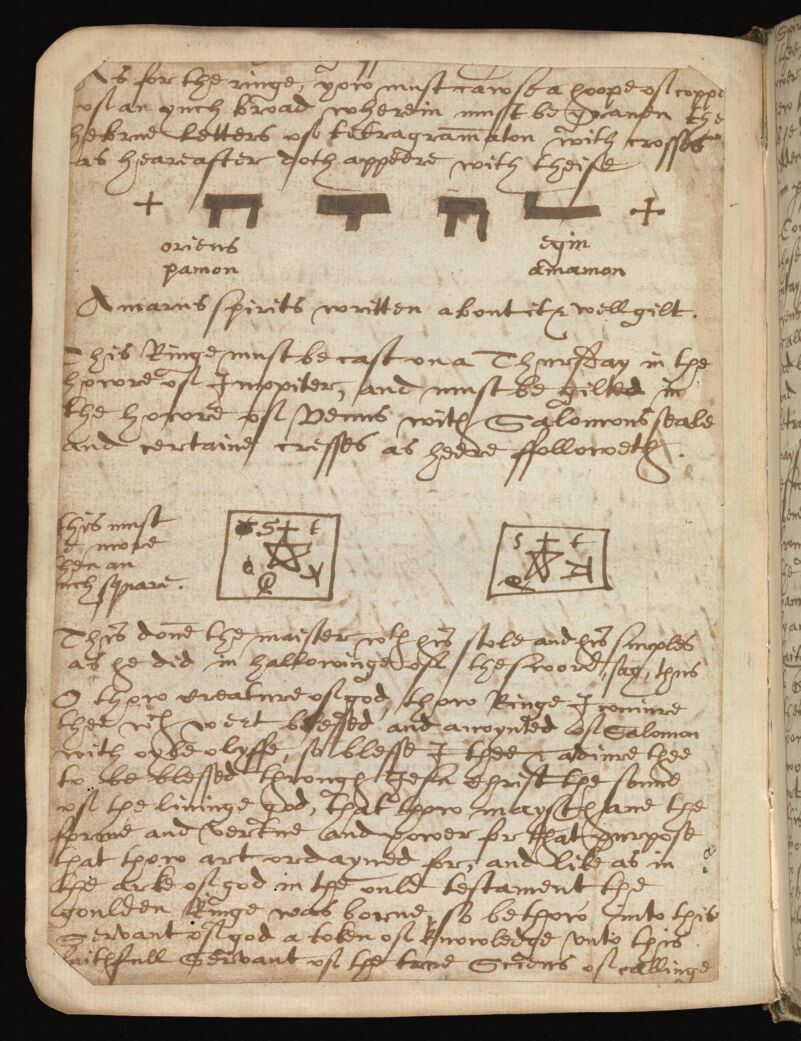 As for the ringe, yow must cawse a hoope of coppe
of an ynch broad wherein must be graven the
hebrue letters of tetragramaton with crosses
as heareafter doth appeere with theise
+ ה ו ה י +
oriens egin
pamon amamon
Amarus spirits written about it & well gilt.
This Ringe must be cast on a Thursday in the
howre of Juppiter, and must be gilted in
the howre of Venus with Salomons seale
and certaine crosses as heere ffolloweth.
this must
be more
then an
ynch square.
S + t
a
S + t
This done the maister wth his stole and his surples
as he did in hallowinge of the sword, say, thus
O thow creature of god, thow Ringe I coniure
thee wch wert blessed and anoynted of Salomon
with oyle olyffe, so blesse I thee & adiure thee
to be blessed through Jesu Christ the sonne
of the livinge god, that thow mayst have the
forme and vertue and power for that purpose
that thow art ordayned for, and like as in
the arke of god in the ould testament the
goulden Ringe was borne, so be thow unto this
Servant of god a token of knowledge unto this
faithfull Servant of the true Sciens of callinge